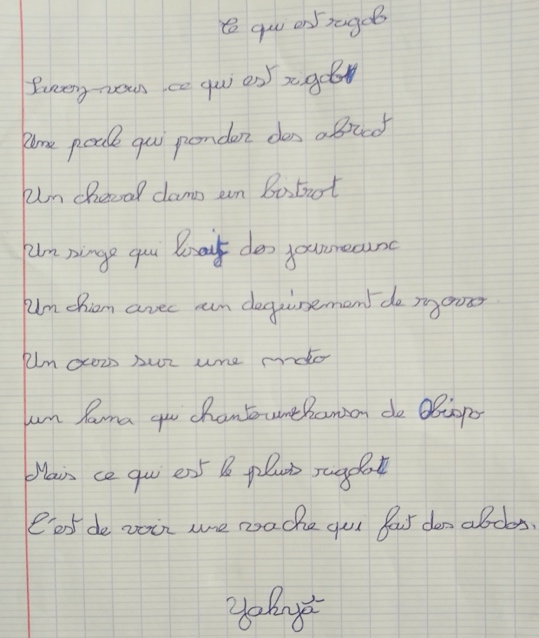 Ce qui est rigolo
Savez-vous ce qui est rigolo
Une poule qui ponder des abricot
Un cheval dans un bistrot
Un singe qui lisait des journeaux
Un chien avec un deguisement de zorro
Un ours sur une moto
un lama qui chante une chanson de Obispo
Mais ce qui est le plus rigolot
C'est de voir une vache qui fait des abdos.
Yahyã